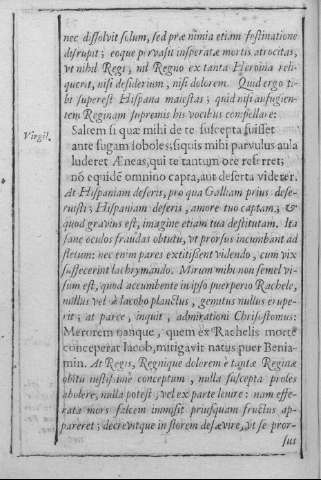 nec dissolvit solum, sed præ nimia etiam festinatione
disrupit; eoque pervasit insperatæ mortis atrocitas,
vt nihil Regi, nil Regno ex tanta Heroina reli-
querit, nisi desiderium, nisi dolorem. Quid ergo ti-
bi superest Hispana maiestas; quid nisi aufugien-
tem Reginam supremis his vocibus compellare:
Virgil. Saltem si quæ mihi de te suscepta fuisset
ante fugam soboles: siquis mihi parvulus aula
luderet Æneas, qui te tantum ore referret;
nõ equidẽ omnino capta, aut deserta viderer.
At Hispaniam deseris, pro qua Galliam prius dese-
ruisti; Hispaniam deseris, amore tuo captam; &
quod gravius est, imagine etiam tua destitutam. Ita
sane oculos fraudas obtutu, vt prorsus incumbant ad
fletum: nec enim pares extitissent videndo, cum vix
suffecerint lachrymando. Mirum mihi non semel vi-
sum est, quod accumbente in ipso puerperio Rachele,
nullus vel à Iacobo planctus, gemitus nullus erupe-
rit; at parce, inquit, admirationi Chrisostomus:
Merorem nanque, quem ex Rachelis morte
conceperat Iacob, mitigavit natus puer Benia-
min. At Regis, Regnique dolorem è tantæ Reginæ
obitu iustissimè conceptum, nulla suscepta proles
abolere, nulla potest, vel ex parte lenire: nam effe-
rata mors falcem immisit priusquam fructus ap-
pareret; decrevitque in florem desævire, vt se pror-
sus